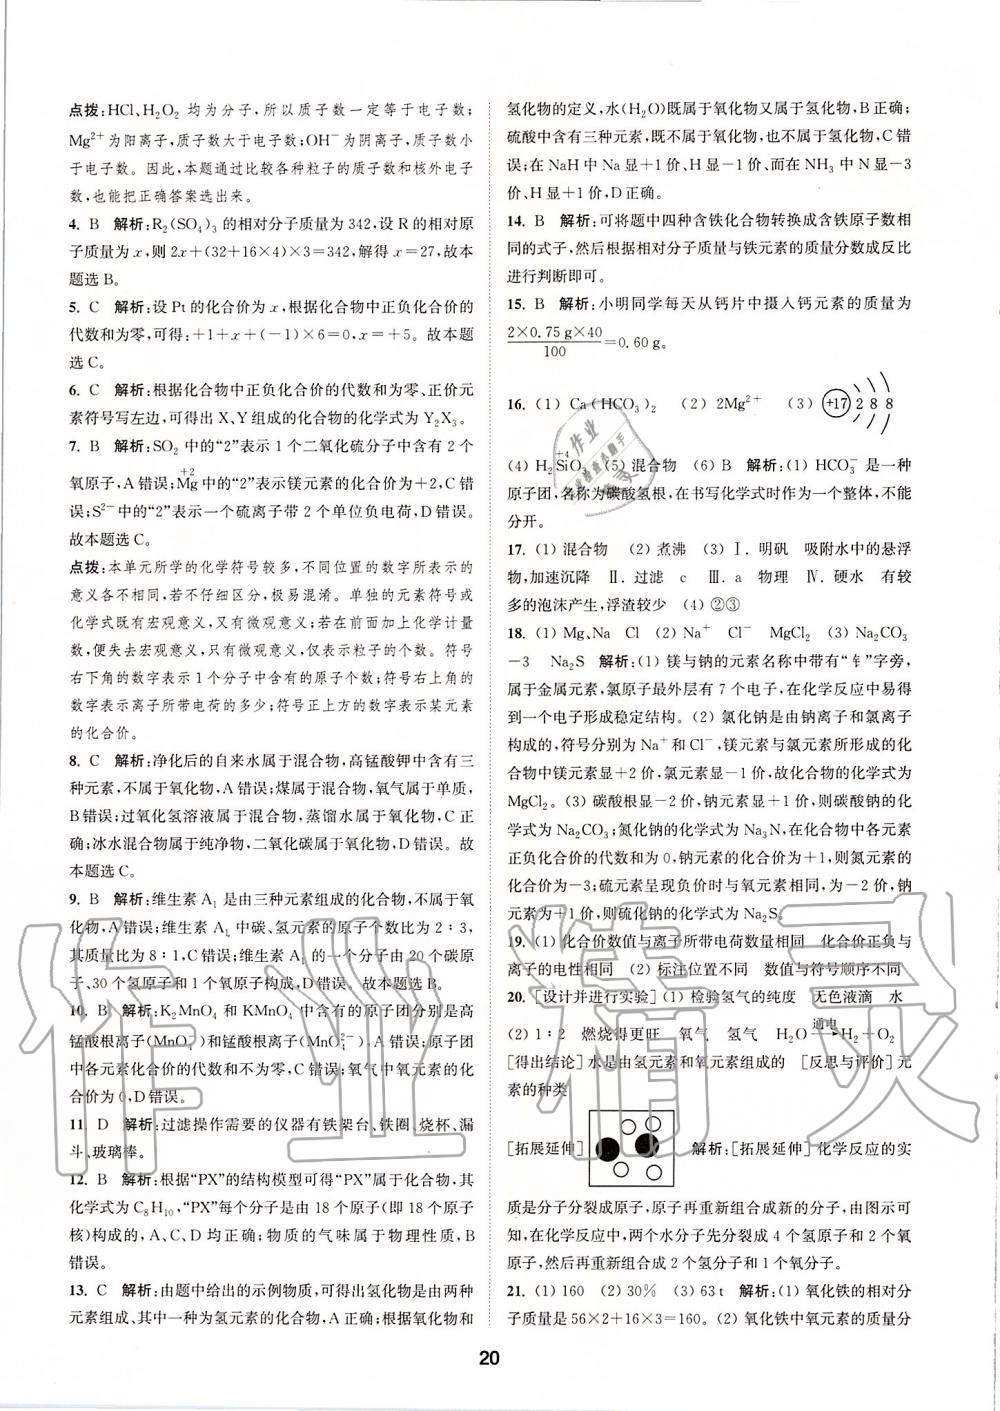 点拨:HCl、H₂O₂ 均为分子,所以质子数一定等于电子数;
Mg²⁺为阳离子,质子数大于电子数;OH⁻为阴离子,质子数小
于电子数。因此,本题通过比较各种粒子的质子数和核外电子
数,也能把正确答案选出来。
4. B 解析:R₂(SO₄)₃ 的相对分子质量为 342,设 R 的相对原
子质量为 x,则 2x+(32+16×4)×3=342,解得 x=27,故本
题选 B。
5. C 解析:设 Pt 的化合价为 x,根据化合物中正负化合价的
代数和为零,可得:+1+x+(-1)×6=0,x=+5。故本题
选 C。
6. C 解析:根据化合物中正负化合价的代数和为零、正价元
素符号写左边,可得出 X、Y 组成的化合物的化学式为 Y₂X₃。
7. B 解析:SO₂ 中的“2”表示 1 个二氧化硫分子中含有 2 个
+2
氧原子,A 错误;Mg中的“2”表示镁元素的化合价为+2,C 错
误;S²⁻中的“2”表示一个硫离子带 2 个单位负电荷,D 错误。
故本题选 C。
点拨:本单元所学的化学符号较多,不同位置的数字所表示的
意义各不相同,若不仔细区分,极易混淆。单独的元素符号或
化学式既有宏观意义,又有微观意义;若在前面加上化学计量
数,便失去宏观意义,只有微观意义,仅表示粒子个数。符号
右下角的数字表示 1 个分子中含有的原子个数;符号右上角的
数字表示离子所带电荷的多少;符号正上方的数字表示某元素
的化合价。
8. C 解析:净化后的自来水属于混合物,高锰酸钾中含有三
种元素,不属于氧化物,A 错误;煤属于混合物,氧气属于单质,
B 错误;过氧化氢溶液属于混合物,蒸馏水属于氧化物,C 正
确;冰水混合物属于纯净物,二氧化碳属于氧化物,D 错误。故
本题选 C。
9. B 解析:维生素 A₁ 是由三种元素组成的化合物,不属于氧
化物,A 错误;维生素 A₁ 中碳、氢元素的原子个数比为 2∶3,
其质量比为 8∶1,C 错误;维生素 A₁ 的一个分子由 20 个碳原
子、30 个氢原子和 1 个氧原子构成,D 错误。故本题选 B。
10. B 解析:K₂MnO₄ 和 KMnO₄ 中含有的原子团分别是高
锰酸根离子(MnO₄⁻)和锰酸根离子(MnO₄²⁻),A 错误;原子团
中各元素化合价的代数和不为零,C 错误;氧气中氧元素的化
合价为 0,D 错误。
11. D 解析:过滤操作需要的仪器有铁架台、铁圈、烧杯、漏
斗、玻璃棒。
12. B 解析:根据“PX”的结构模型可得“PX”属于化合物,其
化学式为 C₈H₁₀,“PX”每个分子是由 18 个原子(即 18 个原子
核)构成的,A、C、D 均正确;物质的气味属于物理性质,B
错误。
13. C 解析:由题中给出的示例物质,可得出氢化物是由两种
元素组成、其中一种为氢元素的化合物,A 正确;根据氧化物和
氢化物的定义,水(H₂O)既属于氧化物又属于氢化物,B 正确;
硫酸中含有三种元素,既不属于氧化物,也不属于氢化物,C 错
误;在 NaH 中 Na 显+1 价、H 显-1 价、而在 NH₃ 中 N 显-3
价、H 显+1 价,D 正确。
14. B 解析:可将题中四种含铁化合物转换成含铁原子数相
同的式子,然后根据相对分子质量与铁元素的质量分数成反比
进行判断即可。
15. B 解析:小明同学每天从钙片中摄入钙元素的质量为
2×0.75 g×40/100=0.60 g。
16. (1) Ca(HCO₃)₂ (2) 2Mg²⁺ (3) +17 2 8 8
+4
(4) H₂SiO₃ (5) 混合物 (6) B 解析:(1) HCO₃⁻ 是一种
原子团,名称为碳酸氢根,在书写化学式时作为一个整体,不能
分开。
17. (1) 混合物 (2) 煮沸 (3) Ⅰ. 明矾 吸附水中的悬浮
物,加速沉降 Ⅱ. 过滤 c Ⅲ. a 物理 Ⅳ. 硬水 有较
多的泡沫产生,浮渣较少 (4) ②③
18. (1) Mg、Na Cl (2) Na⁺ Cl⁻ MgCl₂ (3) Na₂CO₃
-3 Na₂S 解析:(1) 镁与钠的元素名称中带有“钅”字旁,
属于金属元素,氯原子最外层有 7 个电子,在化学反应中易得
到一个电子形成稳定结构。(2) 氯化钠是由钠离子和氯离子
构成的,符号分别为 Na⁺和 Cl⁻,镁元素与氯元素所形成的化
合物中镁显+2 价,氯元素显-1 价,故化合物的化学式为
MgCl₂。(3) 碳酸根显-2 价,钠元素显+1 价,则碳酸钠的化
学式为 Na₂CO₃;氮化钠的化学式为 Na₃N,在化合物中各元素
正负化合价的代数和为 0,钠元素的化合价为+1,则氮元素的
化合价为-3;硫元素呈现负价时与氧元素相同,为-2 价,钠
元素为+1 价,则硫化钠的化学式为 Na₂S。
19. (1) 化合价数值与离子所带电荷数量相同 化合价正负与
离子的电性相同 (2) 标注位置不同 数值与符号顺序不同
20. [设计并进行实验] (1) 检验氢气的纯度 无色液滴 水
(2) 1∶2 燃烧得更旺 氧气 氢气 H₂O —通电→ H₂+O₂
[得出结论] 水是由氢元素和氧元素组成的 [反思与评价] 元
素的种类
[拓展延伸] 解析:[拓展延伸] 化学反应的实
质是分子分裂成原子,原子再重新组合成新的分子。由图示可
知,在化学反应中,两个水分子先分裂成 4 个氢原子和 2 个氧
原子,然后再重新组合成 2 个氢分子和 1 个氧分子。
21. (1) 160 (2) 30% (3) 63 t 解析:(1) 氧化铁的相对分
子质量是 56×2+16×3=160。(2) 氧化铁中氧元素的质量分
20
作业精灵